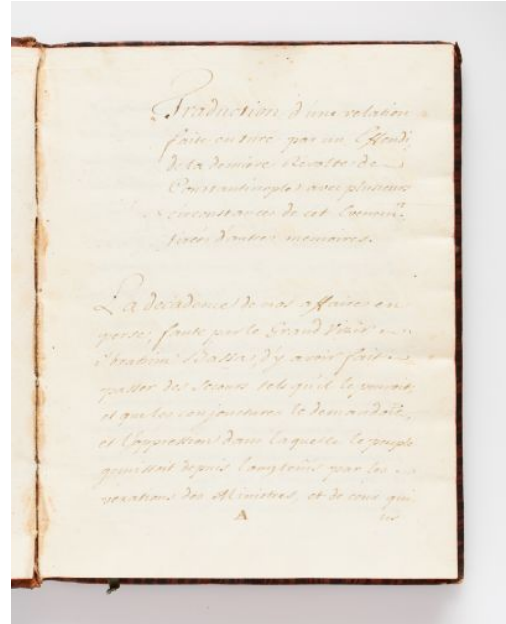 Traduction d'une relation
faite en turc par un Effendi
de la derniere Revolte de
Constantinople avec plusieurs
circonstances de cet Evenem.nt
tirées d'autres memoires.
La decadence de nos affaires en
perse, faute par le Grand Vizir
Ibrahim Bassa, d'y avoir fait
passer des secours tels qu'il le pouvoit,
et que les conjonctures le demandoient,
et l'oppression dans laquelle le peuple
gemissoit depuis longtems par les
vexations des Ministres, et de ceux qui
A